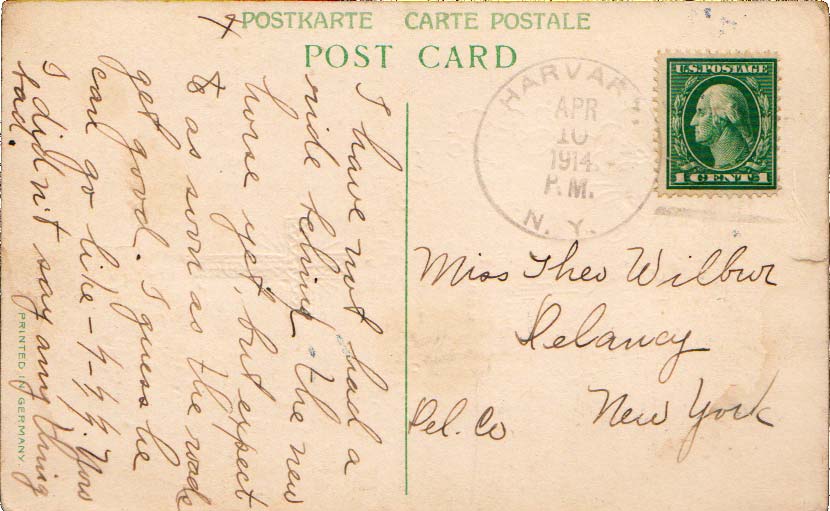 POSTKARTE CARTE POSTALE
POST CARD
HARVARD
APR
10
1914
P.M.
N. Y.
U.S. POSTAGE
1 CENT 1
Miss Theo Wilbur
Delancy
New York
Del. Co
I have not had a
ride behind the new
horse yet, but expect
to as soon as the roads
get good. I guess he
can go like - You
I didn't say any thing
bad.
PRINTED IN GERMANY.